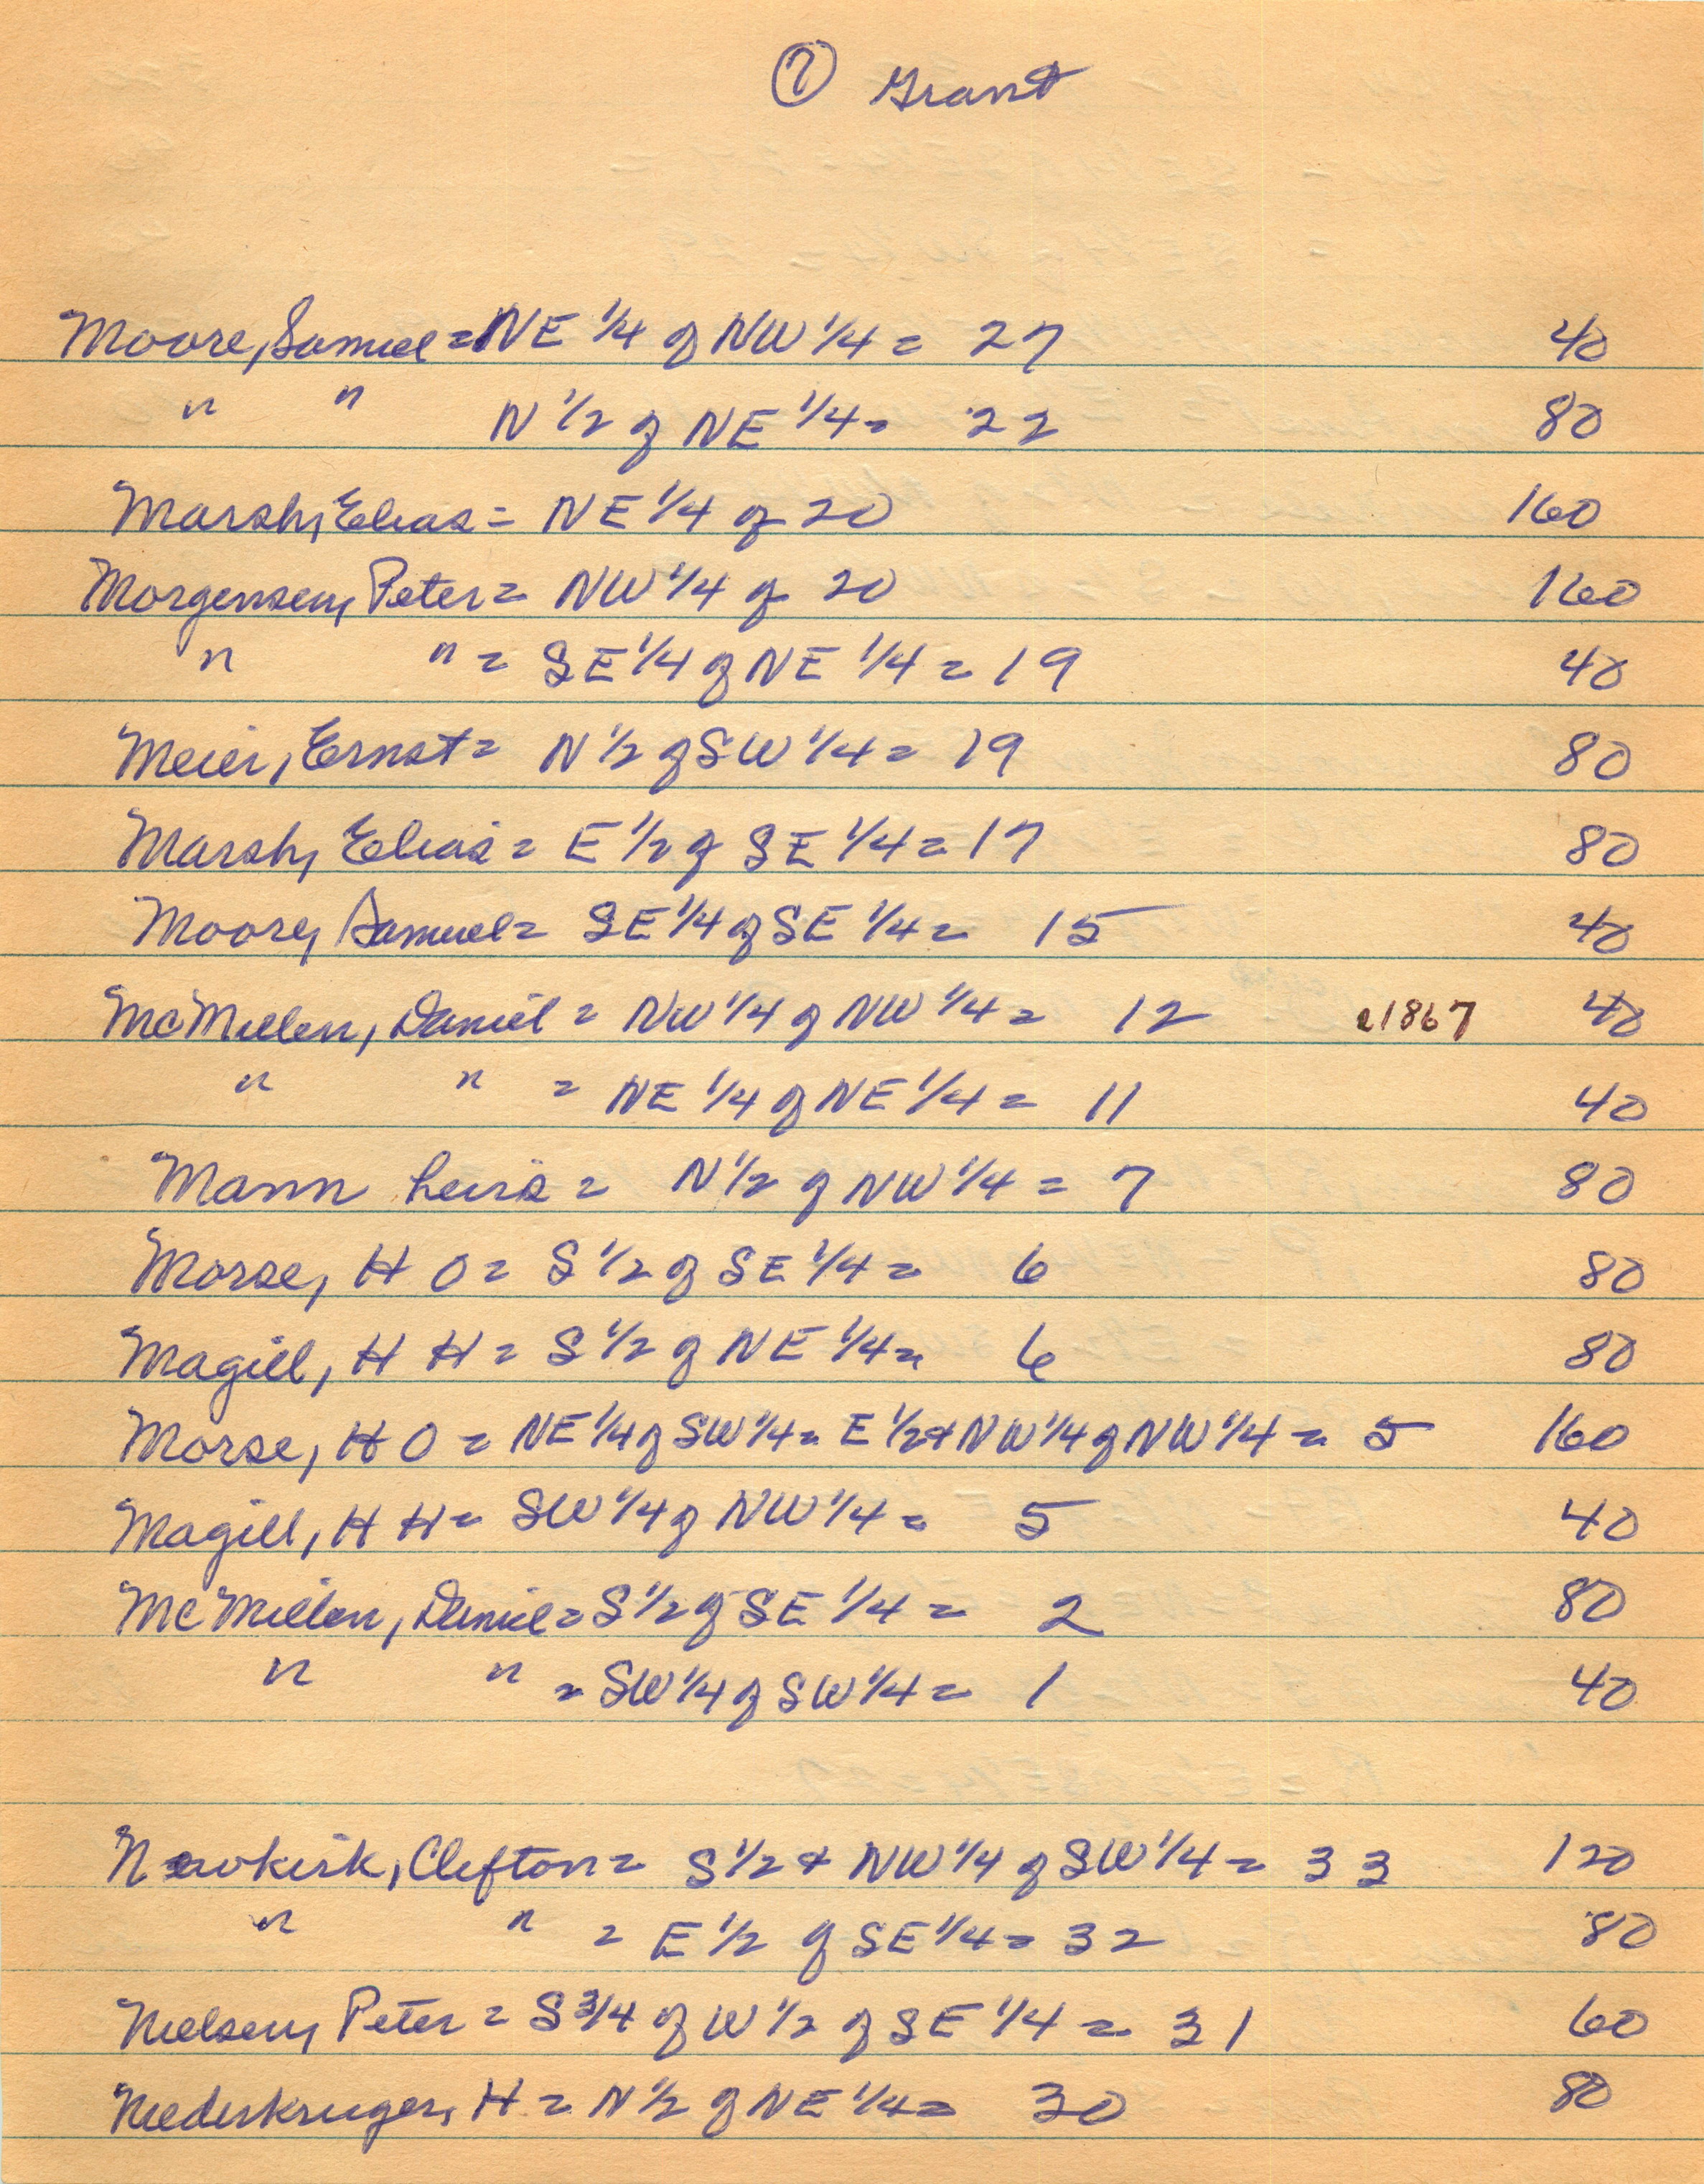 ⑦ Grant
Moore, Samuel = NE 1/4 of NW 1/4 = 27 40
" " N 1/2 of NE 1/4 = 22 80
Marsh, Elias = NE 1/4 of 20 160
Morgensen, Peter = NW 1/4 of 20 160
" " = SE 1/4 of NE 1/4 = 19 40
Meier, Ernst = N 1/2 of SW 1/4 = 19 80
Marsh, Elias = E 1/2 of SE 1/4 = 17 80
Moore, Samuel = SE 1/4 of SE 1/4 = 15 40
McMillen, Daniel = NW 1/4 of NW 1/4 = 12 1867 40
" " = NE 1/4 of NE 1/4 = 11 40
Mann Levis = N 1/2 of NW 1/4 = 7 80
Morse, H O = S 1/2 of SE 1/4 = 6 80
Magill, H H = S 1/2 of NE 1/4 = 6 80
Morse, H O = NE 1/4 of SW 1/4 = E 1/2 + NW 1/4 of NW 1/4 = 5 160
Magill, H H = SW 1/4 of NW 1/4 = 5 40
McMillen, Daniel = S 1/2 of SE 1/4 = 2 80
" " = SW 1/4 of SW 1/4 = 1 40
Newkirk, Clifton = S 1/2 + NW 1/4 of SW 1/4 = 33 120
" " = E 1/2 of SE 1/4 = 32 80
Nielsen, Peter = S 3/4 of W 1/2 of SE 1/4 = 31 60
Niederkruger, H = N 1/2 of NE 1/4 = 30 80